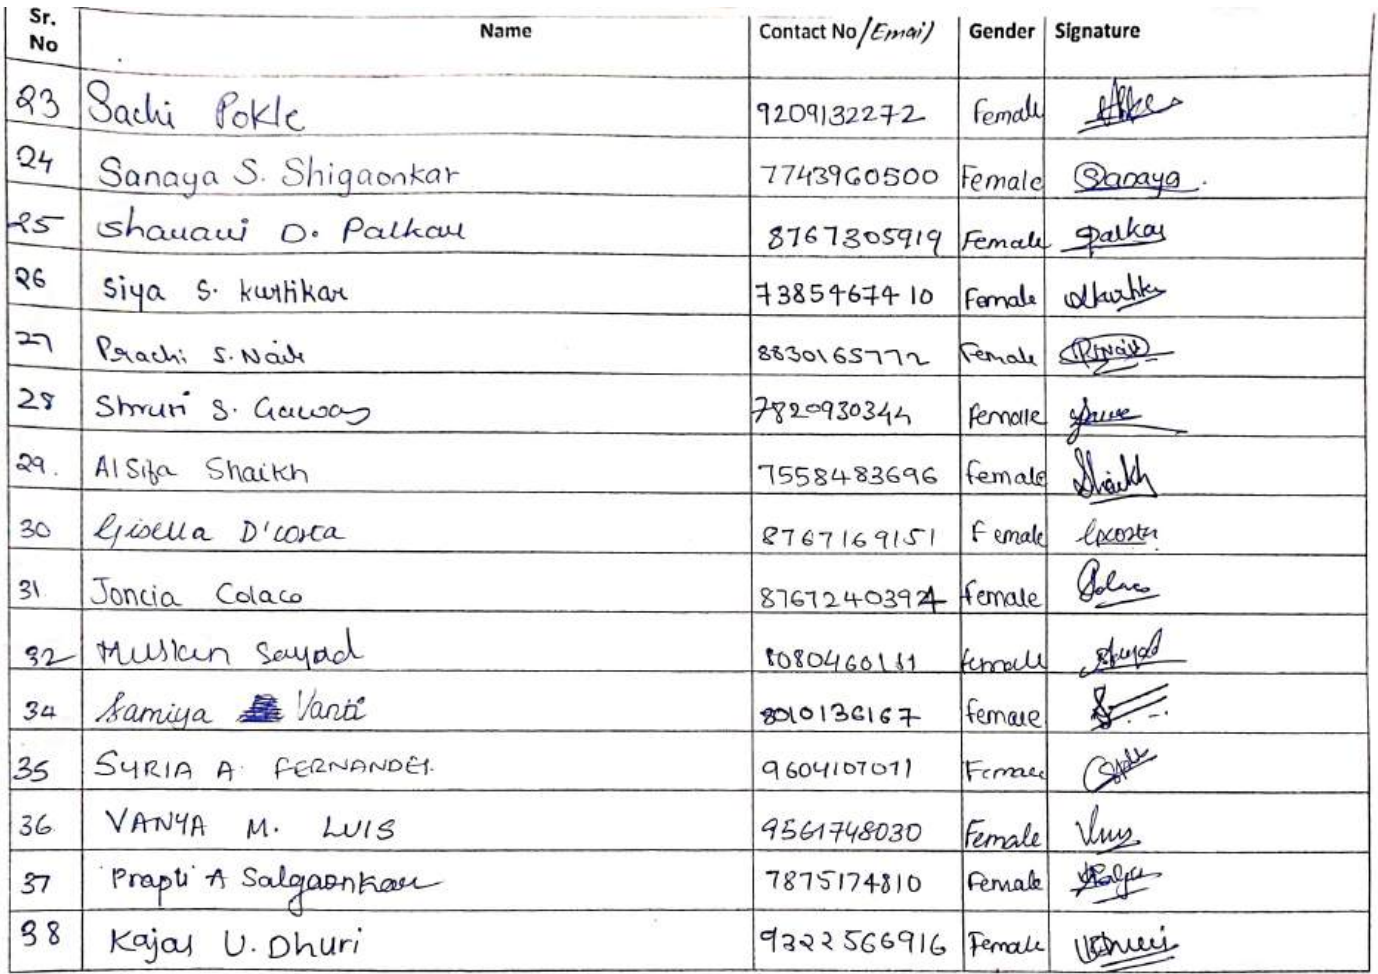 Sr. No Name Contact No/Email) Gender Signature
23 Sachi Pokle 9209132272 Female
24 Sanaya S. Shigaonkar 7743960500 Female Sanaya.
25 Shravani D. Palkar 8767305919 Female Palkar
26 Siya S. Kurtikar 7385467410 Female
27 Prachi S. Naik 8830165772 Female PSNaik
28 Shruti S. Gawas 7820930344 Female
29. AlSifa Shaikh 7558483696 female Shaikh
30 Gisella D'costa 8767169151 Female
31 Joncia Colaco 8767240392 female Colaco
32 Muskan Sayad 8080460181 female Sayad
34 Samiya Vanti 8010136167 female
35 SYRIA A. FERNANDES. 9604107071 Female
36 VANYA M. LUIS 9561748030 Female Luis
37 Prapti A Salgaonkar 7875174810 Female
38 Kajal U. Dhuri 9322566916 Female UDhuri